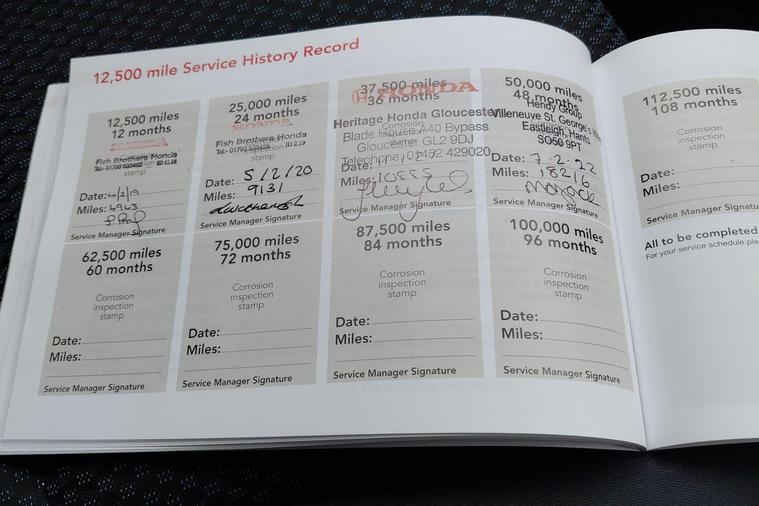 12,500 mile Service History Record
12,500 miles
12 months
HONDA
Fish Brothers Honda
stamp
Date: 4/2/19
Miles: 4963
Service Manager Signature
25,000 miles
24 months
HONDA
Fish Brothers Honda
stamp
Date: 5/2/20
Miles: 9131
Service Manager Signature
37,500 miles
36 months
HONDA
Heritage Honda Gloucester
Corrosion
A40 Bypass
Gloucester GL2 9DJ
Telephone 01452 429020
Date:
Miles: 10555
Service Manager Signature
50,000 miles
48 months
Hendy Group
Villeneuve St. George's
Eastleigh, Hants
SO50 9PT
Date: 7.2.22
Miles: 18216
Service Manager Signature
62,500 miles
60 months
Corrosion
inspection
stamp
Date:
Miles:
Service Manager Signature
75,000 miles
72 months
Corrosion
inspection
stamp
Date:
Miles:
Service Manager Signature
87,500 miles
84 months
Corrosion
inspection
stamp
Date:
Miles:
Service Manager Signature
100,000 miles
96 months
Corrosion
inspection
stamp
Date:
Miles:
Service Manager Signature
112,500 miles
108 months
Corrosion
inspection
stamp
Date:
Miles:
Service Manager
All to be completed
For your service schedule